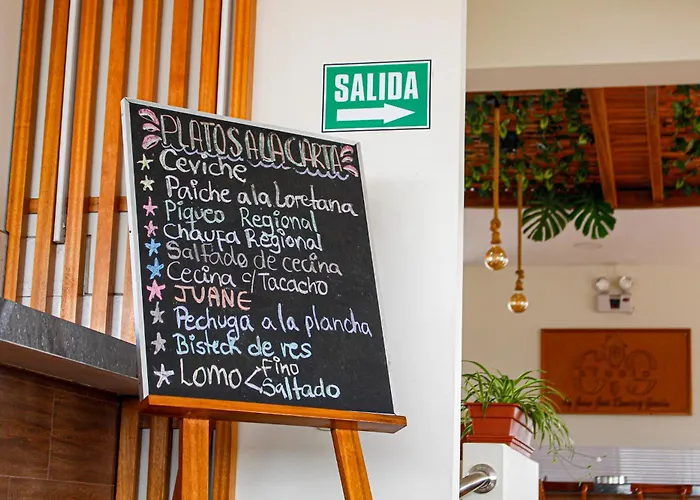 SALIDA
PLATOS A LA CARTA
Ceviche
Paiche a la Loretana
Piqueo Regional
Chaufa Regional
Saltado de cecina
Cecina c/Tacacho
JUANE
Pechuga a la plancha
Bisteck de res
LOMO < Fino
Saltado